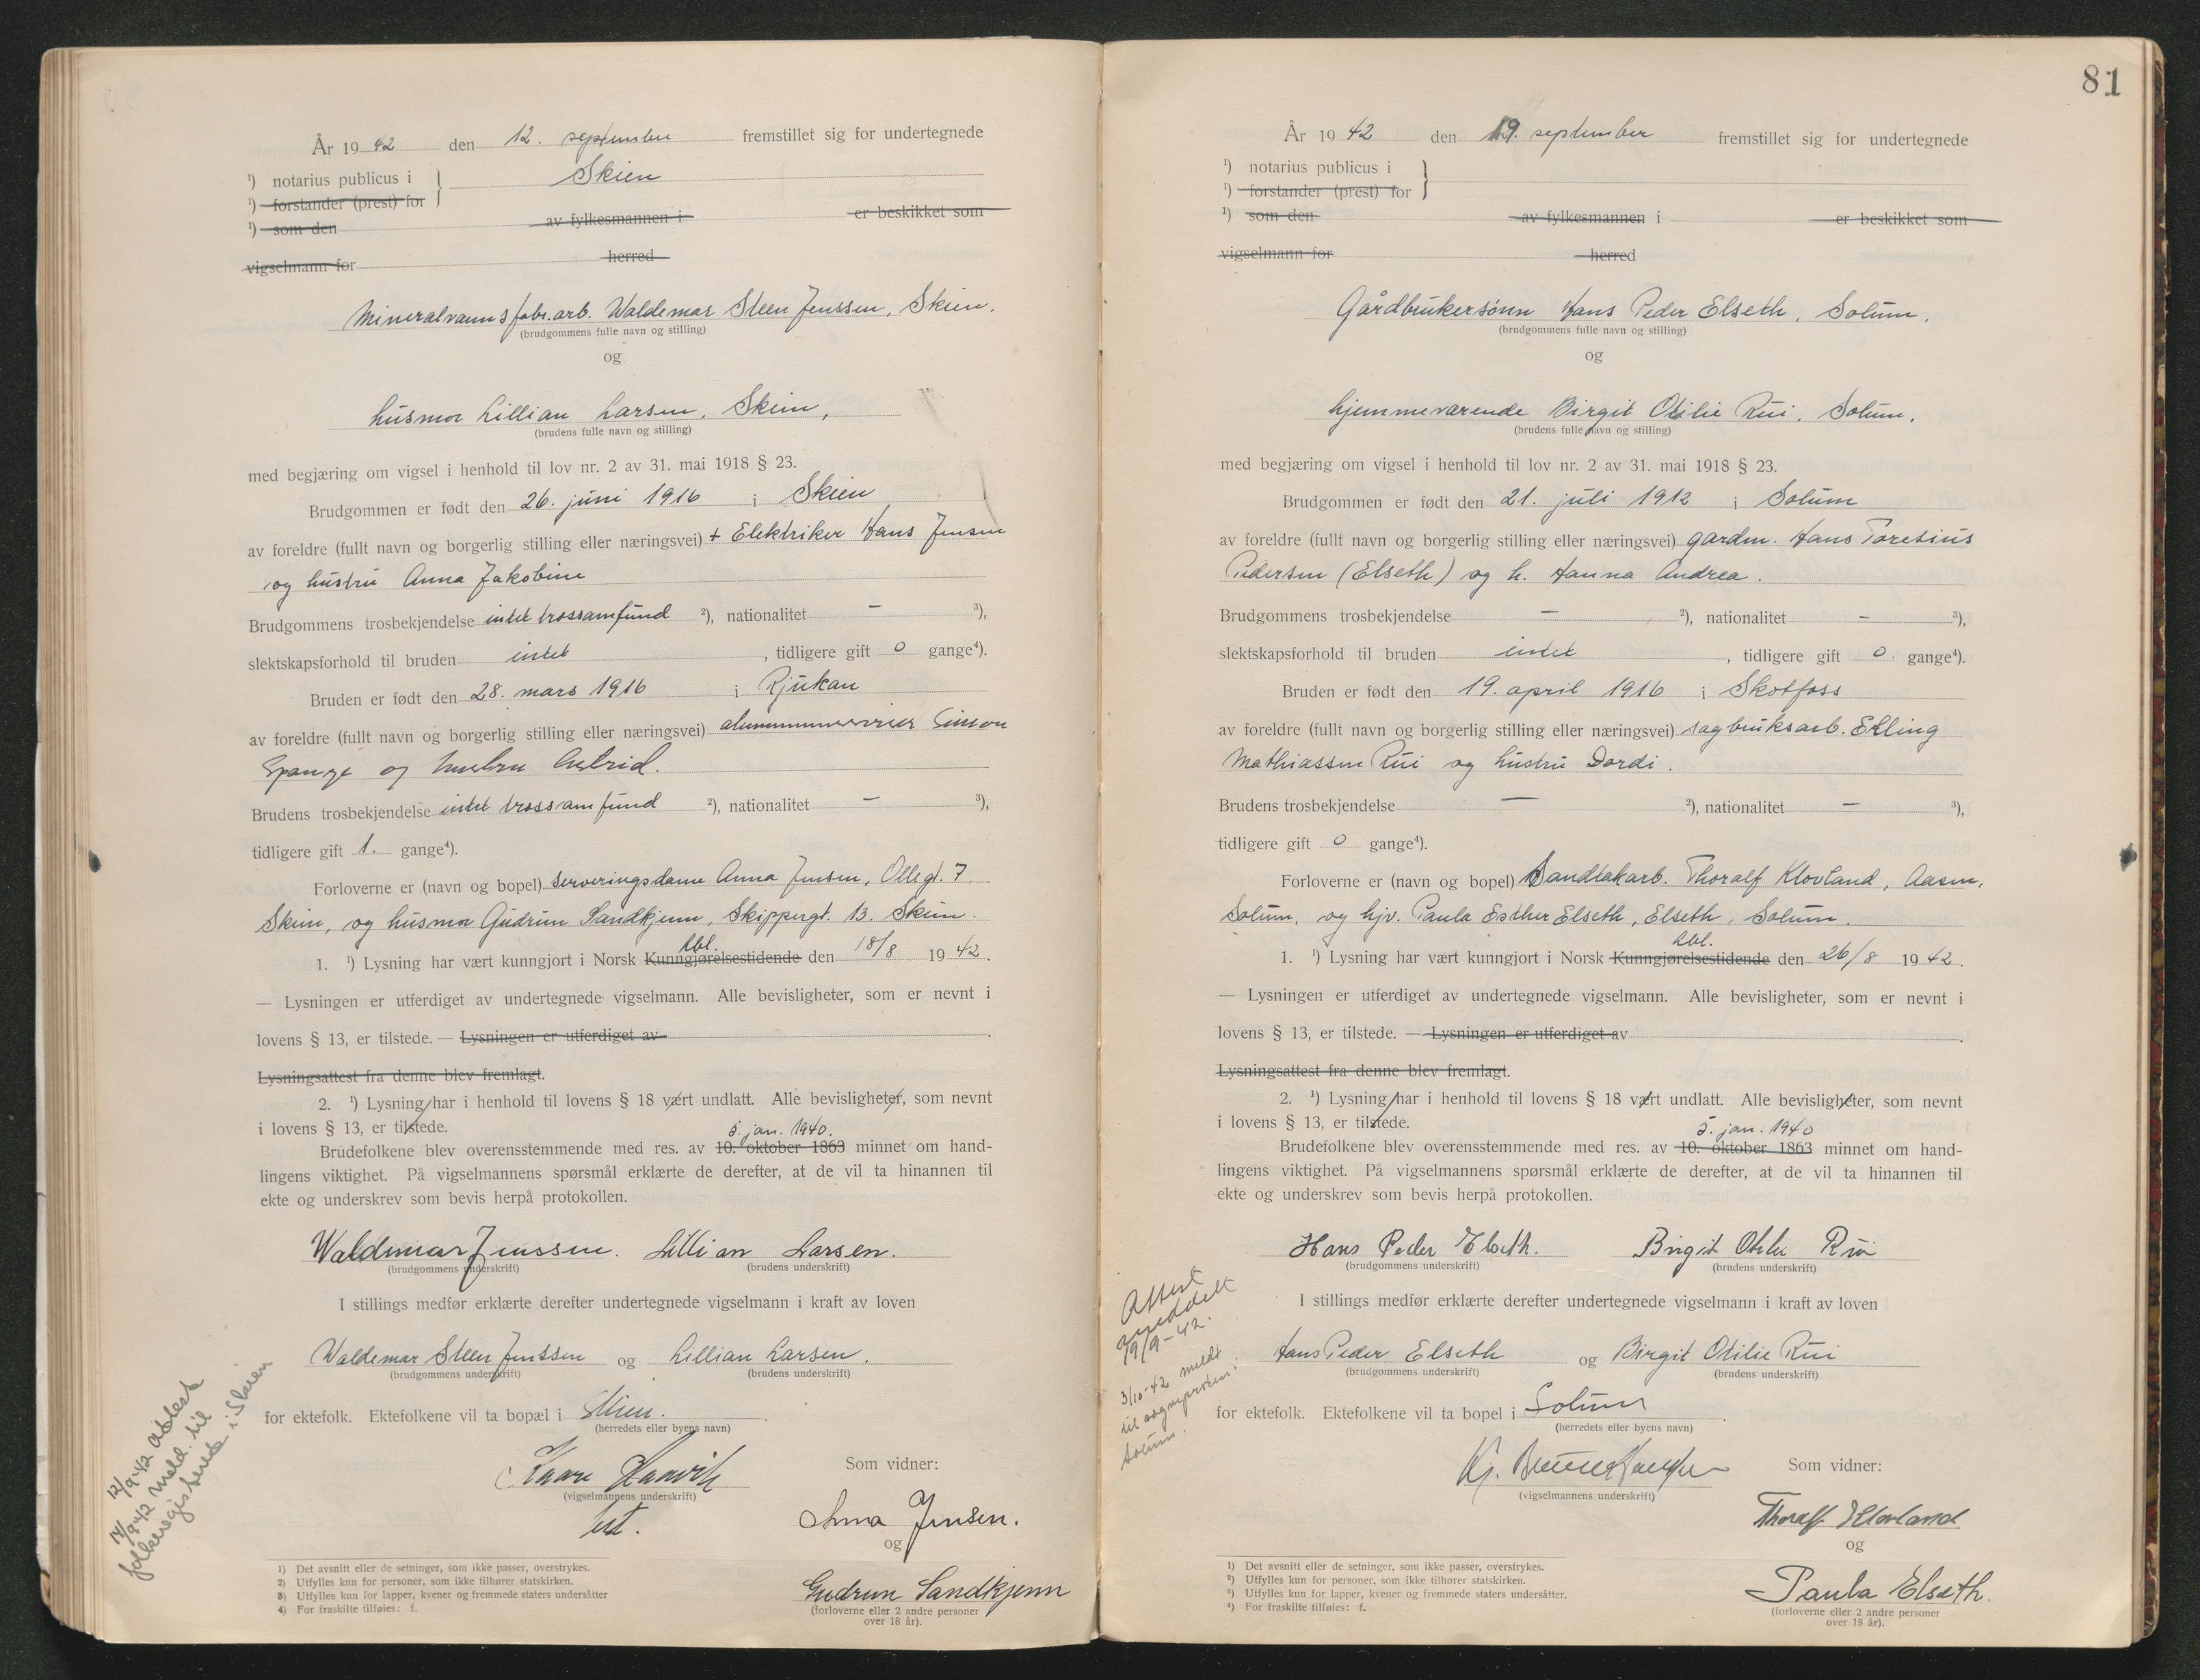 År 19 42 den 12. september fremstillet sig for undertegnede
¹) notarius publicus i Skien
¹) forstander (prest) for
¹) som den av fylkesmannen i er beskikket som
vigselmann for herred
Mineralvannsfabr.arb. Waldemar Steen Jenssen, Skien.
(brudgommens fulle navn og stilling)
og
husmor Lillian Larsen, Skien,
(brudens fulle navn og stilling)
med begjæring om vigsel i henhold til lov nr. 2 av 31. mai 1918 § 23.
Brudgommen er født den 26. juni 1916 i Skien
av foreldre (fullt navn og borgerlig stilling eller næringsvei) + Elektriker Hans Jensen
og hustru Anna Jakobine
Brudgommens trosbekjendelse intet trossamfund ²), nationalitet — ³),
slektskapsforhold til bruden intet, tidligere gift 0 gange⁴).
Bruden er født den 28. mars 1916 i Rjukan
av foreldre (fullt navn og borgerlig stilling eller næringsvei) Simon
Spange og hustru Astrid.
Brudens trosbekjendelse intet trossamfund ²), nationalitet — ³),
tidligere gift 1. gange⁴).
Forloverne er (navn og bopel) serveringsdame Anna Jensen, Ollegt. 7
Skien, og husmor Gudrun Sandkjenn, Skippergt. 13. Skien.
1. ¹) Lysning har vært kunngjort i Norsk Kunngjørelsestidende lbl. den 18/8 1942.
— Lysningen er utferdiget av undertegnede vigselmann. Alle bevisligheter, som er nevnt i
lovens § 13, er tilstede. — Lysningen er utferdiget av .
Lysningsattest fra denne blev fremlagt.
2. ¹) Lysning har i henhold til lovens § 18 vært undlatt. Alle bevisligheter, som nevnt
i lovens § 13, er tilstede.
5. jan. 1940.
Brudefolkene blev overensstemmende med res. av 10. oktober 1863 minnet om hand-
lingens viktighet. På vigselmannens spørsmål erklærte de derefter, at de vil ta hinannen til
ekte og underskrev som bevis herpå protokollen.
Waldemar Jenssen. Lillian Larsen.
(brudgommens underskrift) (brudens underskrift)
I stillings medfør erklærte derefter undertegnede vigselmann i kraft av loven
Waldemar Steen Jenssen og Lillian Larsen.
(brudgommens underskrift) (brudens underskrift)
for ektefolk. Ektefolkene vil ta bopæl i Skien.
(herredets eller byens navn)
Kaare Haavik
(vigselmannens underskrift)
Som vidner:
Anna Jensen.
og
Gudrun Sandkjenn
(forloverne eller 2 andre personer
over 18 år).
12/9-42 attest
14/9-42 meld. til
folkeregisteret i Skien
1) Det avsnitt eller de setninger, som ikke passer, overstrykes.
2) Utfylles kun for personer, som ikke tilhører statskirken.
3) Utfylles kun for lapper, kvener og fremmede staters undersåtter
4) For fraskilte tilføies: f.
81
År 19 42 den 19. september fremstillet sig for undertegnede
¹) notarius publicus i
¹) forstander (prest) for
¹) som den av fylkesmannen i er beskikket som
vigselmann for herred
Gårdbrukersønn Hans Peder Elseth, Solum.
(brudgommens fulle navn og stilling)
og
hjemmeværende Birgit Otilie Rui, Solum.
(brudens fulle navn og stilling)
med begjæring om vigsel i henhold til lov nr. 2 av 31. mai 1918 § 23.
Brudgommen er født den 21. juli 1912 i Solum
av foreldre (fullt navn og borgerlig stilling eller næringsvei) gardm. Hans Toresius
Pedersen (Elseth) og h. Hanna Andrea.
Brudgommens trosbekjendelse — ²), nationalitet — ³),
slektskapsforhold til bruden intet, tidligere gift 0. gange⁴).
Bruden er født den 19. april 1916 i Skotfoss
av foreldre (fullt navn og borgerlig stilling eller næringsvei) sagbruksarb. Elling
Mathiassen Rui og hustru Dordi.
Brudens trosbekjendelse — ²), nationalitet — ³),
tidligere gift 0 gange⁴).
Forloverne er (navn og bopel) Thoralf Klovland, Aasen,
Solum, og hjv. Paula Esther Elseth, Elseth, Solum.
1. ¹) Lysning har vært kunngjort i Norsk Kunngjørelsestidende lbl. den 26/8 1942.
— Lysningen er utferdiget av undertegnede vigselmann. Alle bevisligheter, som er nevnt i
lovens § 13, er tilstede. — Lysningen er utferdiget av .
Lysningsattest fra denne blev fremlagt.
2. ¹) Lysning har i henhold til lovens § 18 vært undlatt. Alle bevisligheter, som nevnt
i lovens § 13, er tilstede.
5. jan. 1940
Brudefolkene blev overensstemmende med res. av 10. oktober 1863 minnet om hand-
lingens viktighet. På vigselmannens spørsmål erklærte de derefter, at de vil ta hinannen til
ekte og underskrev som bevis herpå protokollen.
Hans Peder Elseth. Birgit Otilie Rui
(brudgommens underskrift) (brudens underskrift)
I stillings medfør erklærte derefter undertegnede vigselmann i kraft av loven
Hans Peder Elseth og Birgit Otilie Rui
(brudgommens underskrift) (brudens underskrift)
for ektefolk. Ektefolkene vil ta bopel i Solum
(herredets eller byens navn)
(vigselmannens underskrift)
Som vidner:
Thoralf Klovland
og
Paula Elseth.
(forloverne eller 2 andre personer
over 18 år).
Attest
meddelt
19/9-42.
3/10-42 meldt
til sognepresten i
Solum.
1) Det avsnitt eller de setninger, som ikke passer, overstrykes.
2) Utfylles kun for personer, som ikke tilhører statskirken.
3) Utfylles kun for lapper, kvener og fremmede staters undersåtter.
4) For fraskilte tilføies: f.